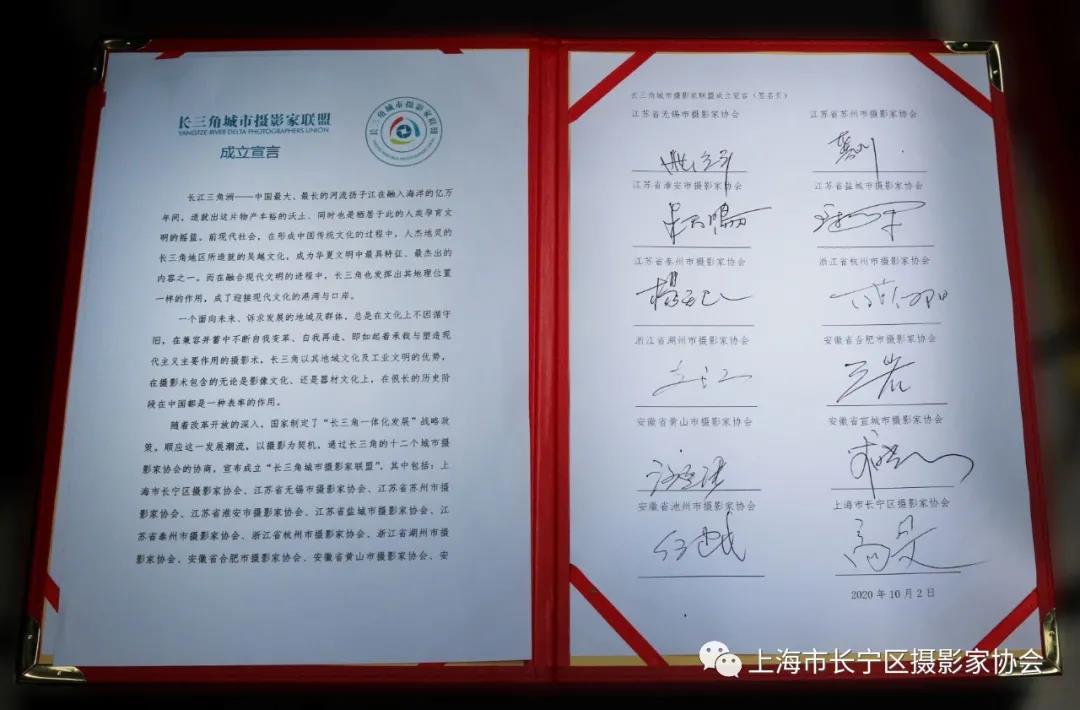 长三角城市摄影家联盟
YANGTZE RIVER DELTA PHOTOGRAPHERS UNION
成立宣言
长三角城市摄影家联盟
长江三角洲——中国最大、最长的河流扬子江在融入海洋的亿万
年间,造就出这片物产丰裕的沃土、同时也是栖居于此的人类孕育文
明的摇篮。前现代社会,在形成中国传统文化的过程中,人杰地灵的
长三角地区所造就的吴越文化,成为华夏文明中最具特征、最杰出的
内容之一。而在融合现代文明的进程中,长三角也发挥出其地理位置
一样的作用,成了迎接现代文化的港湾与口岸。
一个面向未来、诉求发展的地域及群体,总是在文化上不因循守
旧,在兼容并蓄中不断自我变革、自我再造。即如起着承载与塑造现
代主义主要作用的摄影术,长三角以其地域文化及工业文明的优势,
在摄影术包含的无论是影像文化、还是器材文化上,在很长的历史阶
段在中国都是一种表率的作用。
随着改革开放的深入,国家制定了“长三角一体化发展”战略政
策。顺应这一发展潮流,以摄影为契机,通过长三角的十二个城市摄
影家协会的协商,宣布成立“长三角城市摄影家联盟”,其中包括:上
海市长宁区摄影家协会、江苏省无锡市摄影家协会、江苏省苏州市摄
影家协会、江苏省淮安市摄影家协会、江苏省盐城市摄影家协会、江
苏省泰州市摄影家协会、浙江省杭州市摄影家协会、浙江省湖州市摄
影家协会、安徽省合肥市摄影家协会、安徽省黄山市摄影家协会、安
长三角城市摄影家联盟成立宣言(签名页)
江苏省无锡市摄影家协会
江苏省苏州市摄影家协会
江苏省淮安市摄影家协会
江苏省盐城市摄影家协会
江苏省泰州市摄影家协会
浙江省杭州市摄影家协会
浙江省湖州市摄影家协会
安徽省合肥市摄影家协会
安徽省黄山市摄影家协会
安徽省宣城市摄影家协会
安徽省池州市摄影家协会
上海市长宁区摄影家协会
2020年10月2日
上海市长宁区摄影家协会